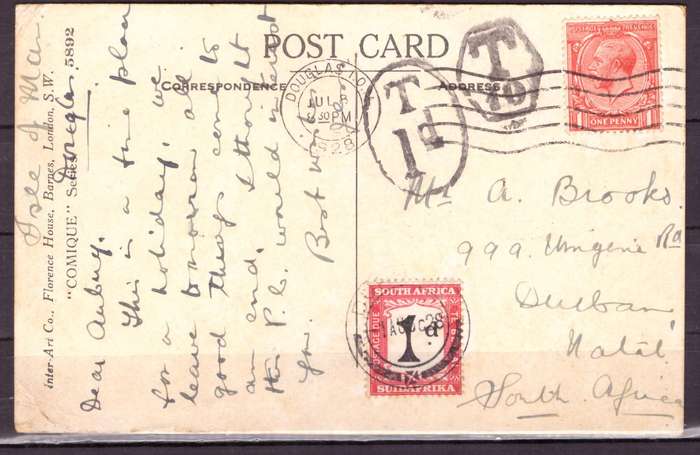 POST CARD
CORRESPONDENCE
ADDRESS
Inter-Art Co., Florence House, Barnes, London, S.W.
"COMIQUE" Series 5892
Isle of Man
Douglas
Dear Aubury,
This is a fine place
for a holiday, we
leave tomorrow all
good things come to
an end. I thought
this P.C. would interest
you. Best wishes
DOUGLAS I.O.M
JUL
30 PM
28
T
1d
T
10
ONE PENNY
Mr A. Brooks
999. Umgeni Rd
Durban
Natal
South Africa
SOUTH AFRICA
POSTAGE DUE
1d
1 AUG 28
SUIDAFRIKA